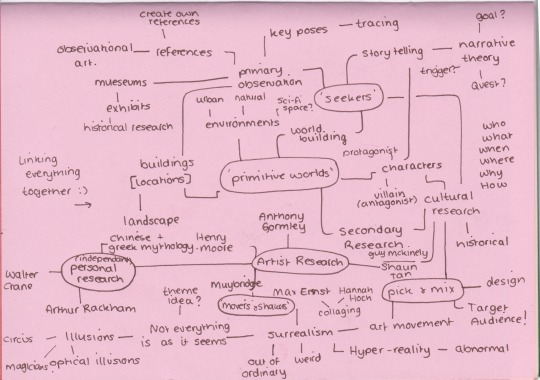 create own
references
key poses
tracing
goal?
observational
art.
references
story telling
narrative
theory
trigger?
Quest?
museums
primary
observation
'seekers'
exhibits
historical research
urban
natural
sci-fi
space?
environments
world
building
who
what
when
where
why
How
linking
everything
together :)
buildings
[locations]
'primitive worlds'
protagonist
characters
villain
(antagonist)
cultural
research
landscape
Anthony
Gormley
Secondary
Research
historical
chinese +
greek mythology
Henry
moore
guy mckinely
Walter
Crane
(independant)
personal
research
Artist Research
Shaun
Tan
pick & mix
design
Arthur Rackham
theme
idea?
Muybridge
'movers & shakers'
Max Ernst
Hannah
Hoch
collaging
Target
Audience!
circus
Illusions
Not everything
is as it seems
surrealism
art movement
magicians
optical illusions
out of
ordinary
weird
Hyper-reality
abnormal